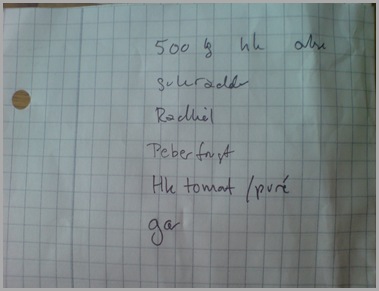 500 g hk oks
gulerødder
Rødløg
Peberfrugt
Hk tomat / puré
gær